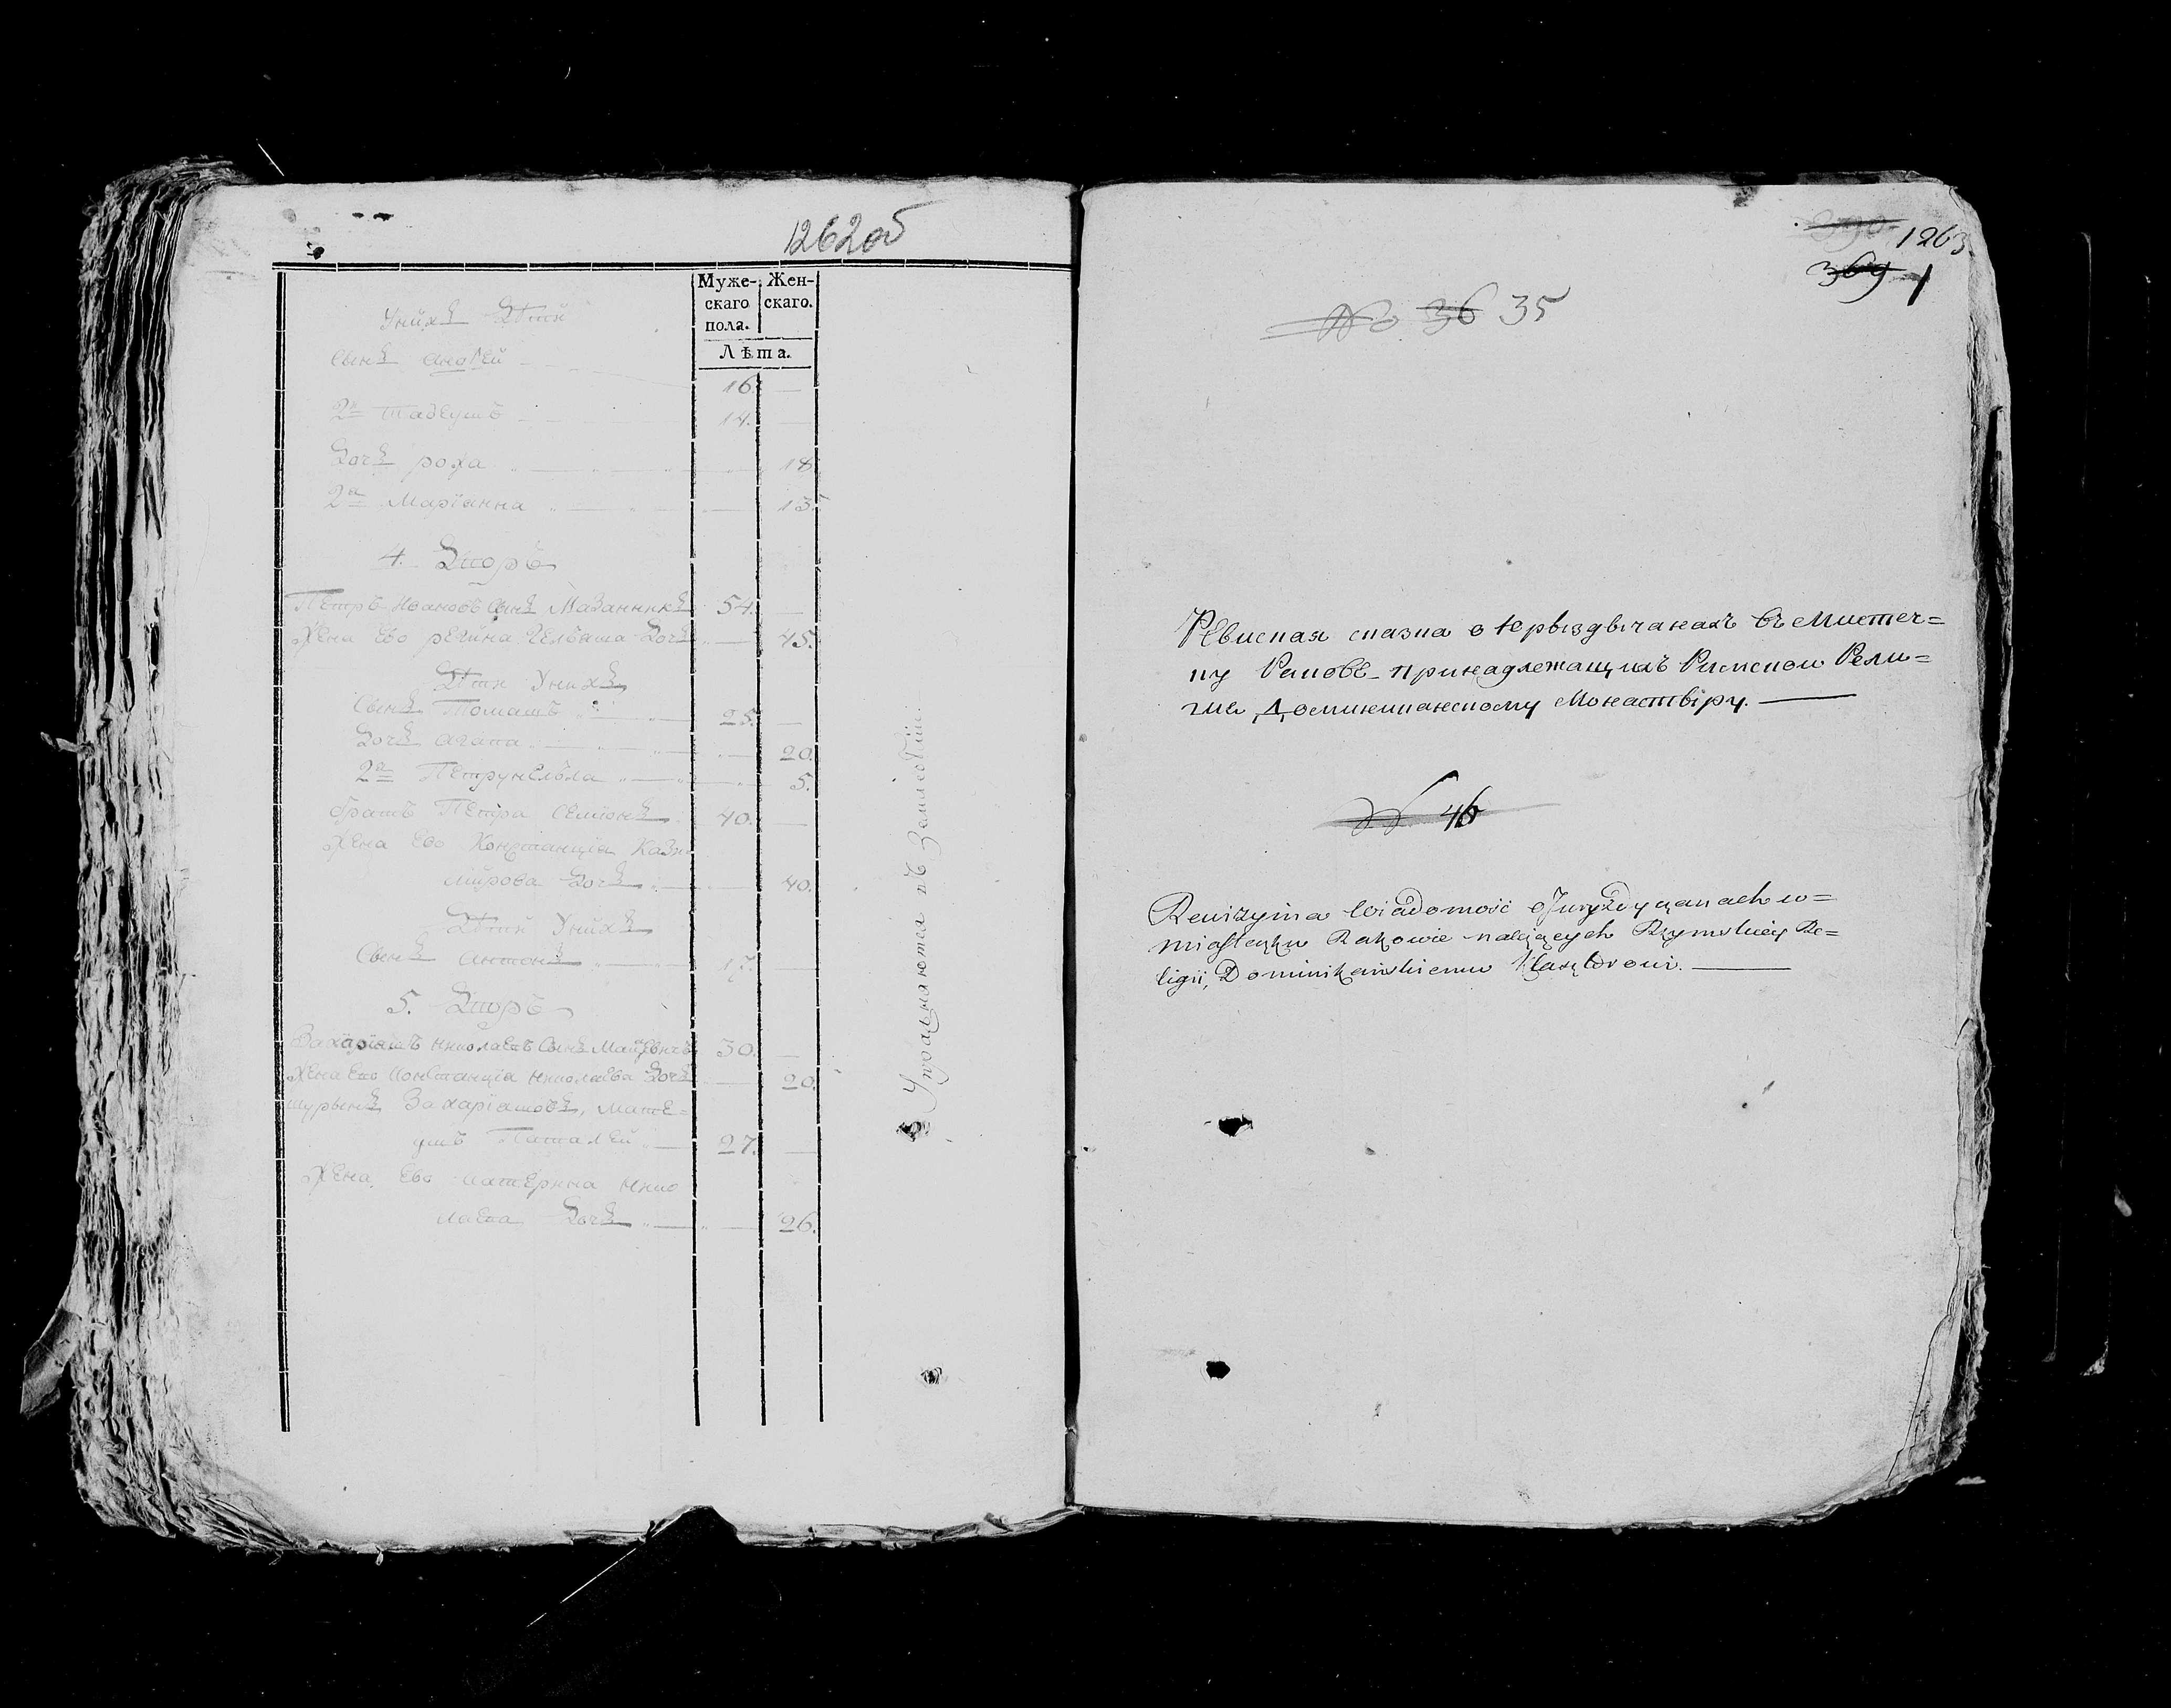 1262об
Муже- Жен-
скаго скаго.
пола.
Лѣта.
Унихъ Дѣти
Сынъ
16. —
2й Тадеушъ 14. —
Дочь роза 18.
2я Марїанна 13.
4. Дворъ
Петръ Ивановъ Сынъ Мазаникъ 54. —
Жена Ево регина Дочь 45.
Дѣти Унихъ
Сынъ Томашъ 25. —
Дочь агата 20.
2я Петрунелъла 5.
братъ Петра Семионъ 40. —
Жена Ево Констанцїа Кази
мирова Дочь 40.
Дѣти Унихъ
Сынъ антонъ 17. —
5. Дворъ
Захарїашъ николаевъ Сынъ Мацкевичъ 30. —
Жена Ево Констанцїа николаева Дочь 20.
шурынъ Захарїашовъ, Мате-
ушъ 27. —
Жена Ево катерина нико
лаева Дочь 26.
Упражняются въ Земледѣлїи.
1263
369 1
No 36 35
Ревиская сказка о юрыздычанахъ въ Мистеч=
ку Ракове принадлежащихъ Римской Рели=
гии Доминиканскому Монастыру.
N 46
Rewizyina Wiadomość o Juryzdyczanach w=
miasteczku Rakowie należących Rzymskiey Re=
ligii, Dominikańskiemu Klasztorowi.